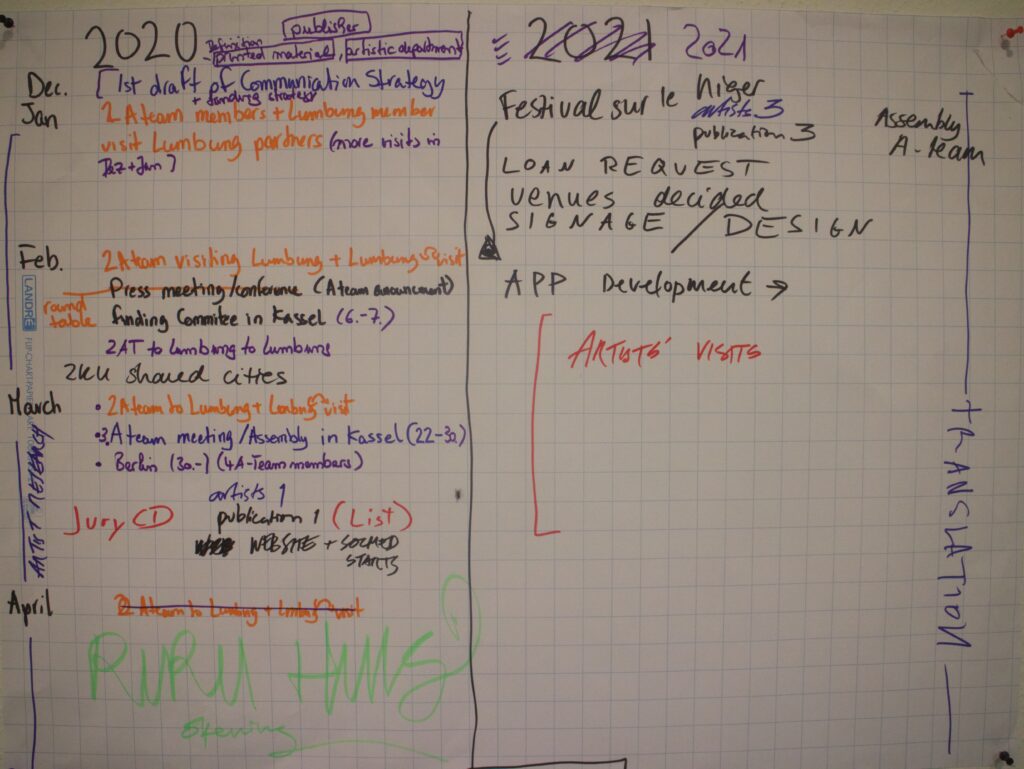 2020
publisher
Definition
printed material, artistic department
Dec.
1st draft of Communication Strategy
+ funding strategy
Jan
2 Ateam members + Lumbung member
visit Lumbung partners (more visits in
Dez + Jan)
Feb.
2 Ateam visiting Lumbung + Lumbung visit
Press meeting/conference (Ateam announcement)
round table
funding Commitee in Kassel (6.-7.)
2AT to Lumbung to Lumbung
shared cities
March
• 2 Ateam to Lumbung + Lumbung visit
•3. Ateam meeting/Assembly in Kassel (22-30)
• Berlin (30.-) (4A-Team members)
artists 1
Jury CD
publication 1 (List)
WEBSITE + SOCMED
STARTS
April
2 Ateam to Lumbung + Lumbung visit
RURU HUUS
Opening
LANDRÉ
2021 2021
Festival sur le Niger
artists 3
publication 3
LOAN REQUEST
venues decided
SIGNAGE / DESIGN
APP Development →
ARTISTS' VISITS
Assembly
A-team
TRANSLATION